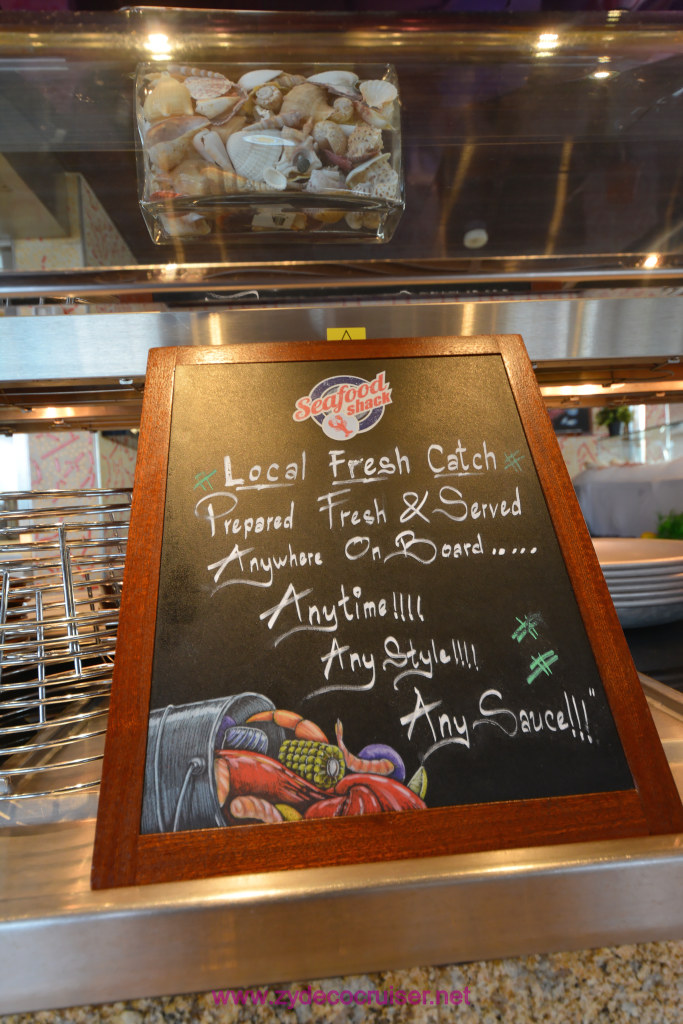 Seafood
shack
# Local Fresh Catch #
Prepared Fresh & Served
Anywhere On Board.....
Anytime!!!!
Any Style!!!!
Any Sauce!!!"
www.zydecocruiser.net